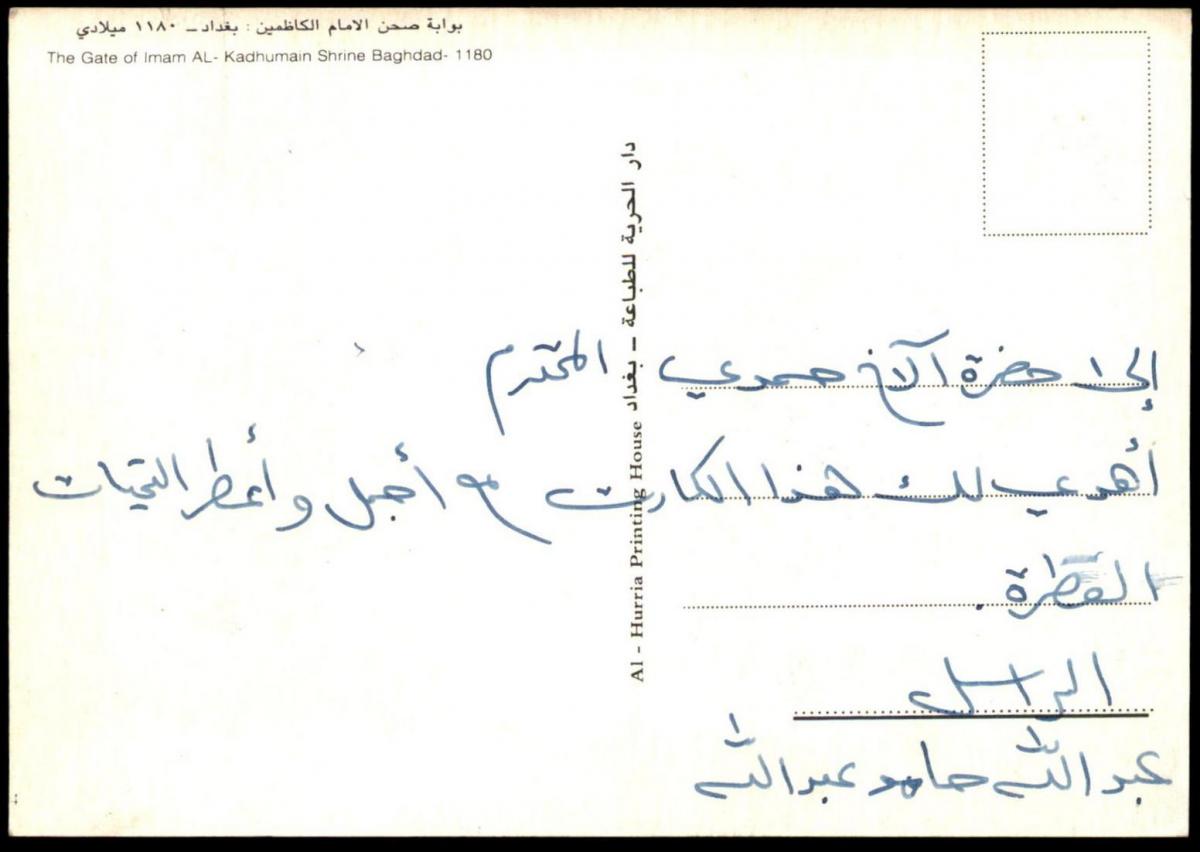 بوابة صحن الامام الكاظمين : بغداد – ١١٨٠ ميلادي
The Gate of Imam AL- Kadhumain Shrine Baghdad- 1180
Al - Hurria Printing House دار الحرية للطباعة – بغداد
إلى حضرة الاخ حمدي المحترم
أهدي لك هذا الكارت مع أجمل وأعطر التحيات
العطرة .
الراسل
عبد الله حامد عبد الله